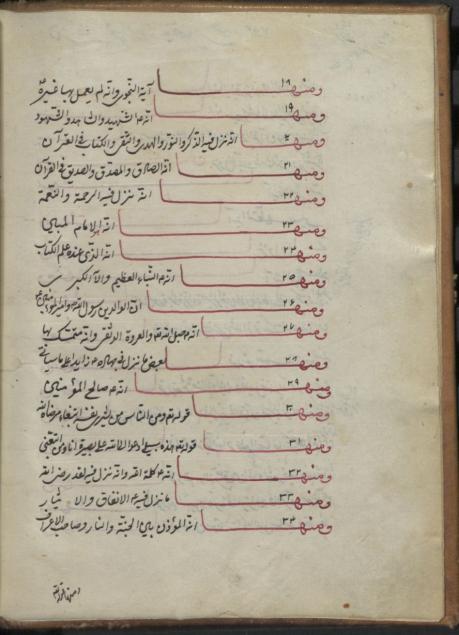 ومنها ١٨ آية النجوى وانه لم يعمل بها غيره
ومنها ١٩ انه الشهيد والشاهد والمشهود
ومنها ٢٠ انه نزل فيه الذكر والنور والهدى والتقى والكتاب في القرآن
ومنها ٢١ انه الصادق والمصدق والصديق في القرآن
ومنها ٢٢ انه نزل فيه الرحمة والنعمة
ومنها ٢٣ انه الامام المبين
ومنها ٢٤ انه الذي عنده علم الكتاب
ومنها ٢٥ انه النباء العظيم والآية الكبرى
ومنها ٢٦ ان الوالدين رسول الله وامير المؤمنين
ومنها ٢٧ انه حبل الله والعروة الوثقى وانه متمسك بها
ومنها ٢٨ بعض ما نزل في جهاده زايدا على ما سياتي
ومنها ٢٩ انه صالح المؤمنين
ومنها ٣٠ قوله ومن الناس من يشري نفسه ابتغاء مرضات الله
ومنها ٣١ قوله هذه سبيلي ادعوا الى الله على بصيرة انا ومن اتبعني
ومنها ٣٢ انه كلمة الله وانه نزل فيه لقد رضي الله
ومنها ٣٣ ما نزل فيه الانفاق والايثار
ومنها ٣٤ انه المؤذن بين الجنة والنار وصاحب الاعراف